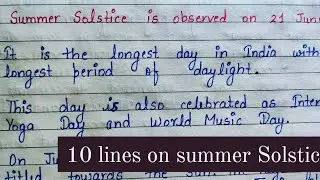 Summer Solstice is observed on 21 Jun
It is the longest day in India with
longest period of daylight.
This day is also celebrated as Inter
Yoga Day and World Music Day.
On Ju
10 lines on summer Solstic
titled towards the Sun.